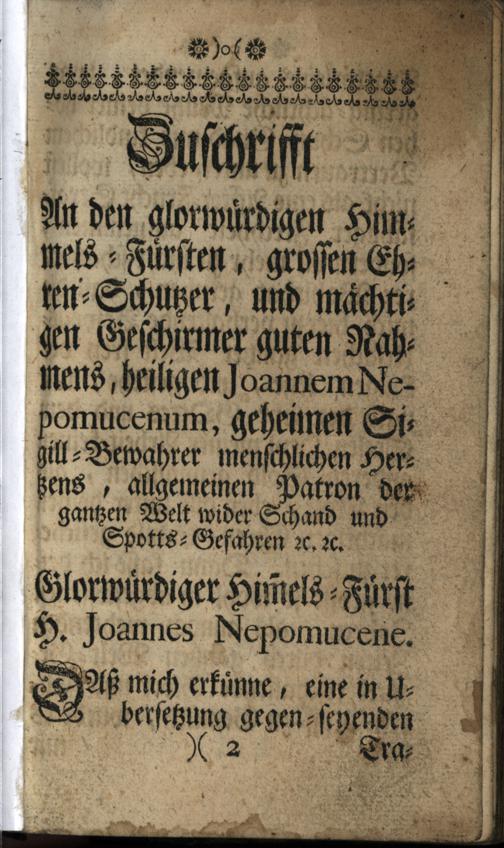 )o(
Zuschrifft
An den glorwürdigen Him-
mels-Fürsten, grossen Eh-
ren-Schutzer, und mächti-
gen Geschirmer guten Nah-
mens, heiligen Joannem Ne-
pomucenum, geheimen Si-
gill-Bewahrer menschlichen Her-
tzens, allgemeinen Patron der
gantzen Welt wider Schand und
Spotts-Gefahren ꝛc. ꝛc.
Glorwürdiger Him̅els-Fürst
H. Joannes Nepomucene.
DAß mich erkünne, eine in U-
bersetzung gegen-seyenden
)( 2 Tra-